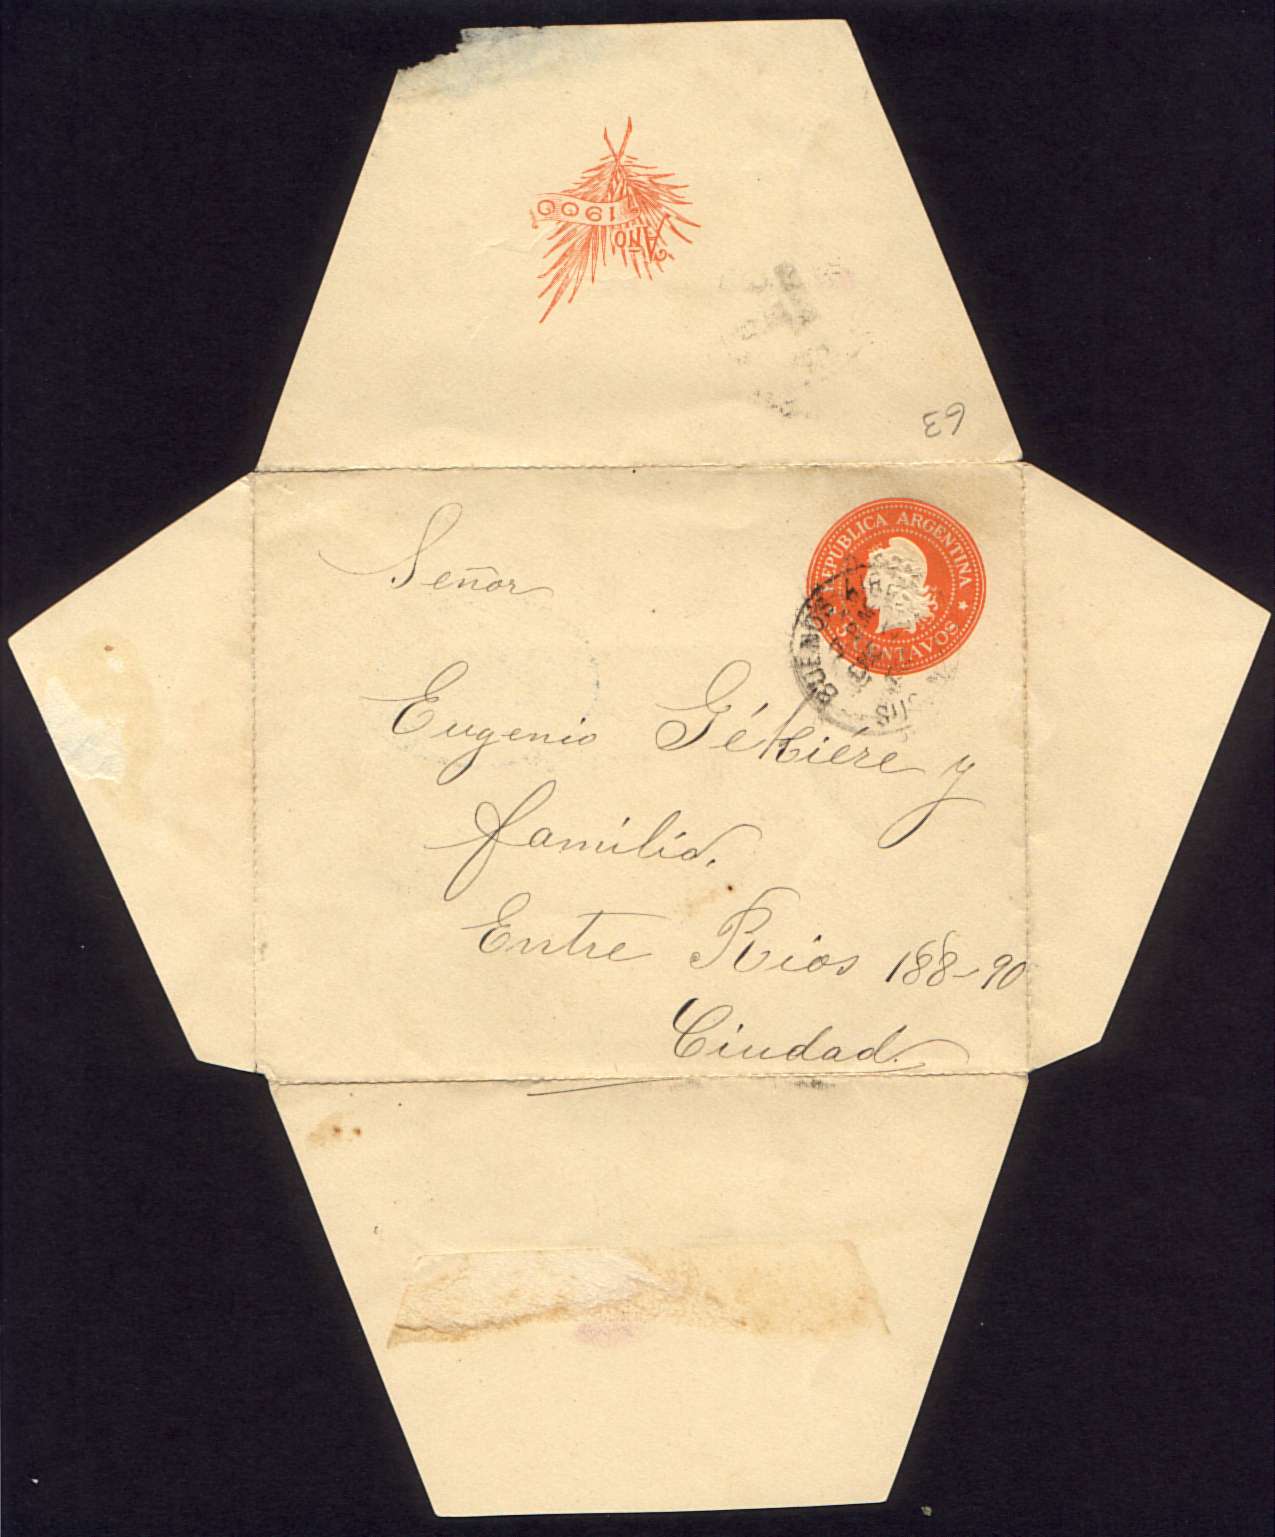 AÑO
1900
63
REPUBLICA ARGENTINA
5 CENTAVOS
BUENOS AIRES
Señor
Eugenio Gékiére y
familia.
Entre Rios 188-90
Ciudad.